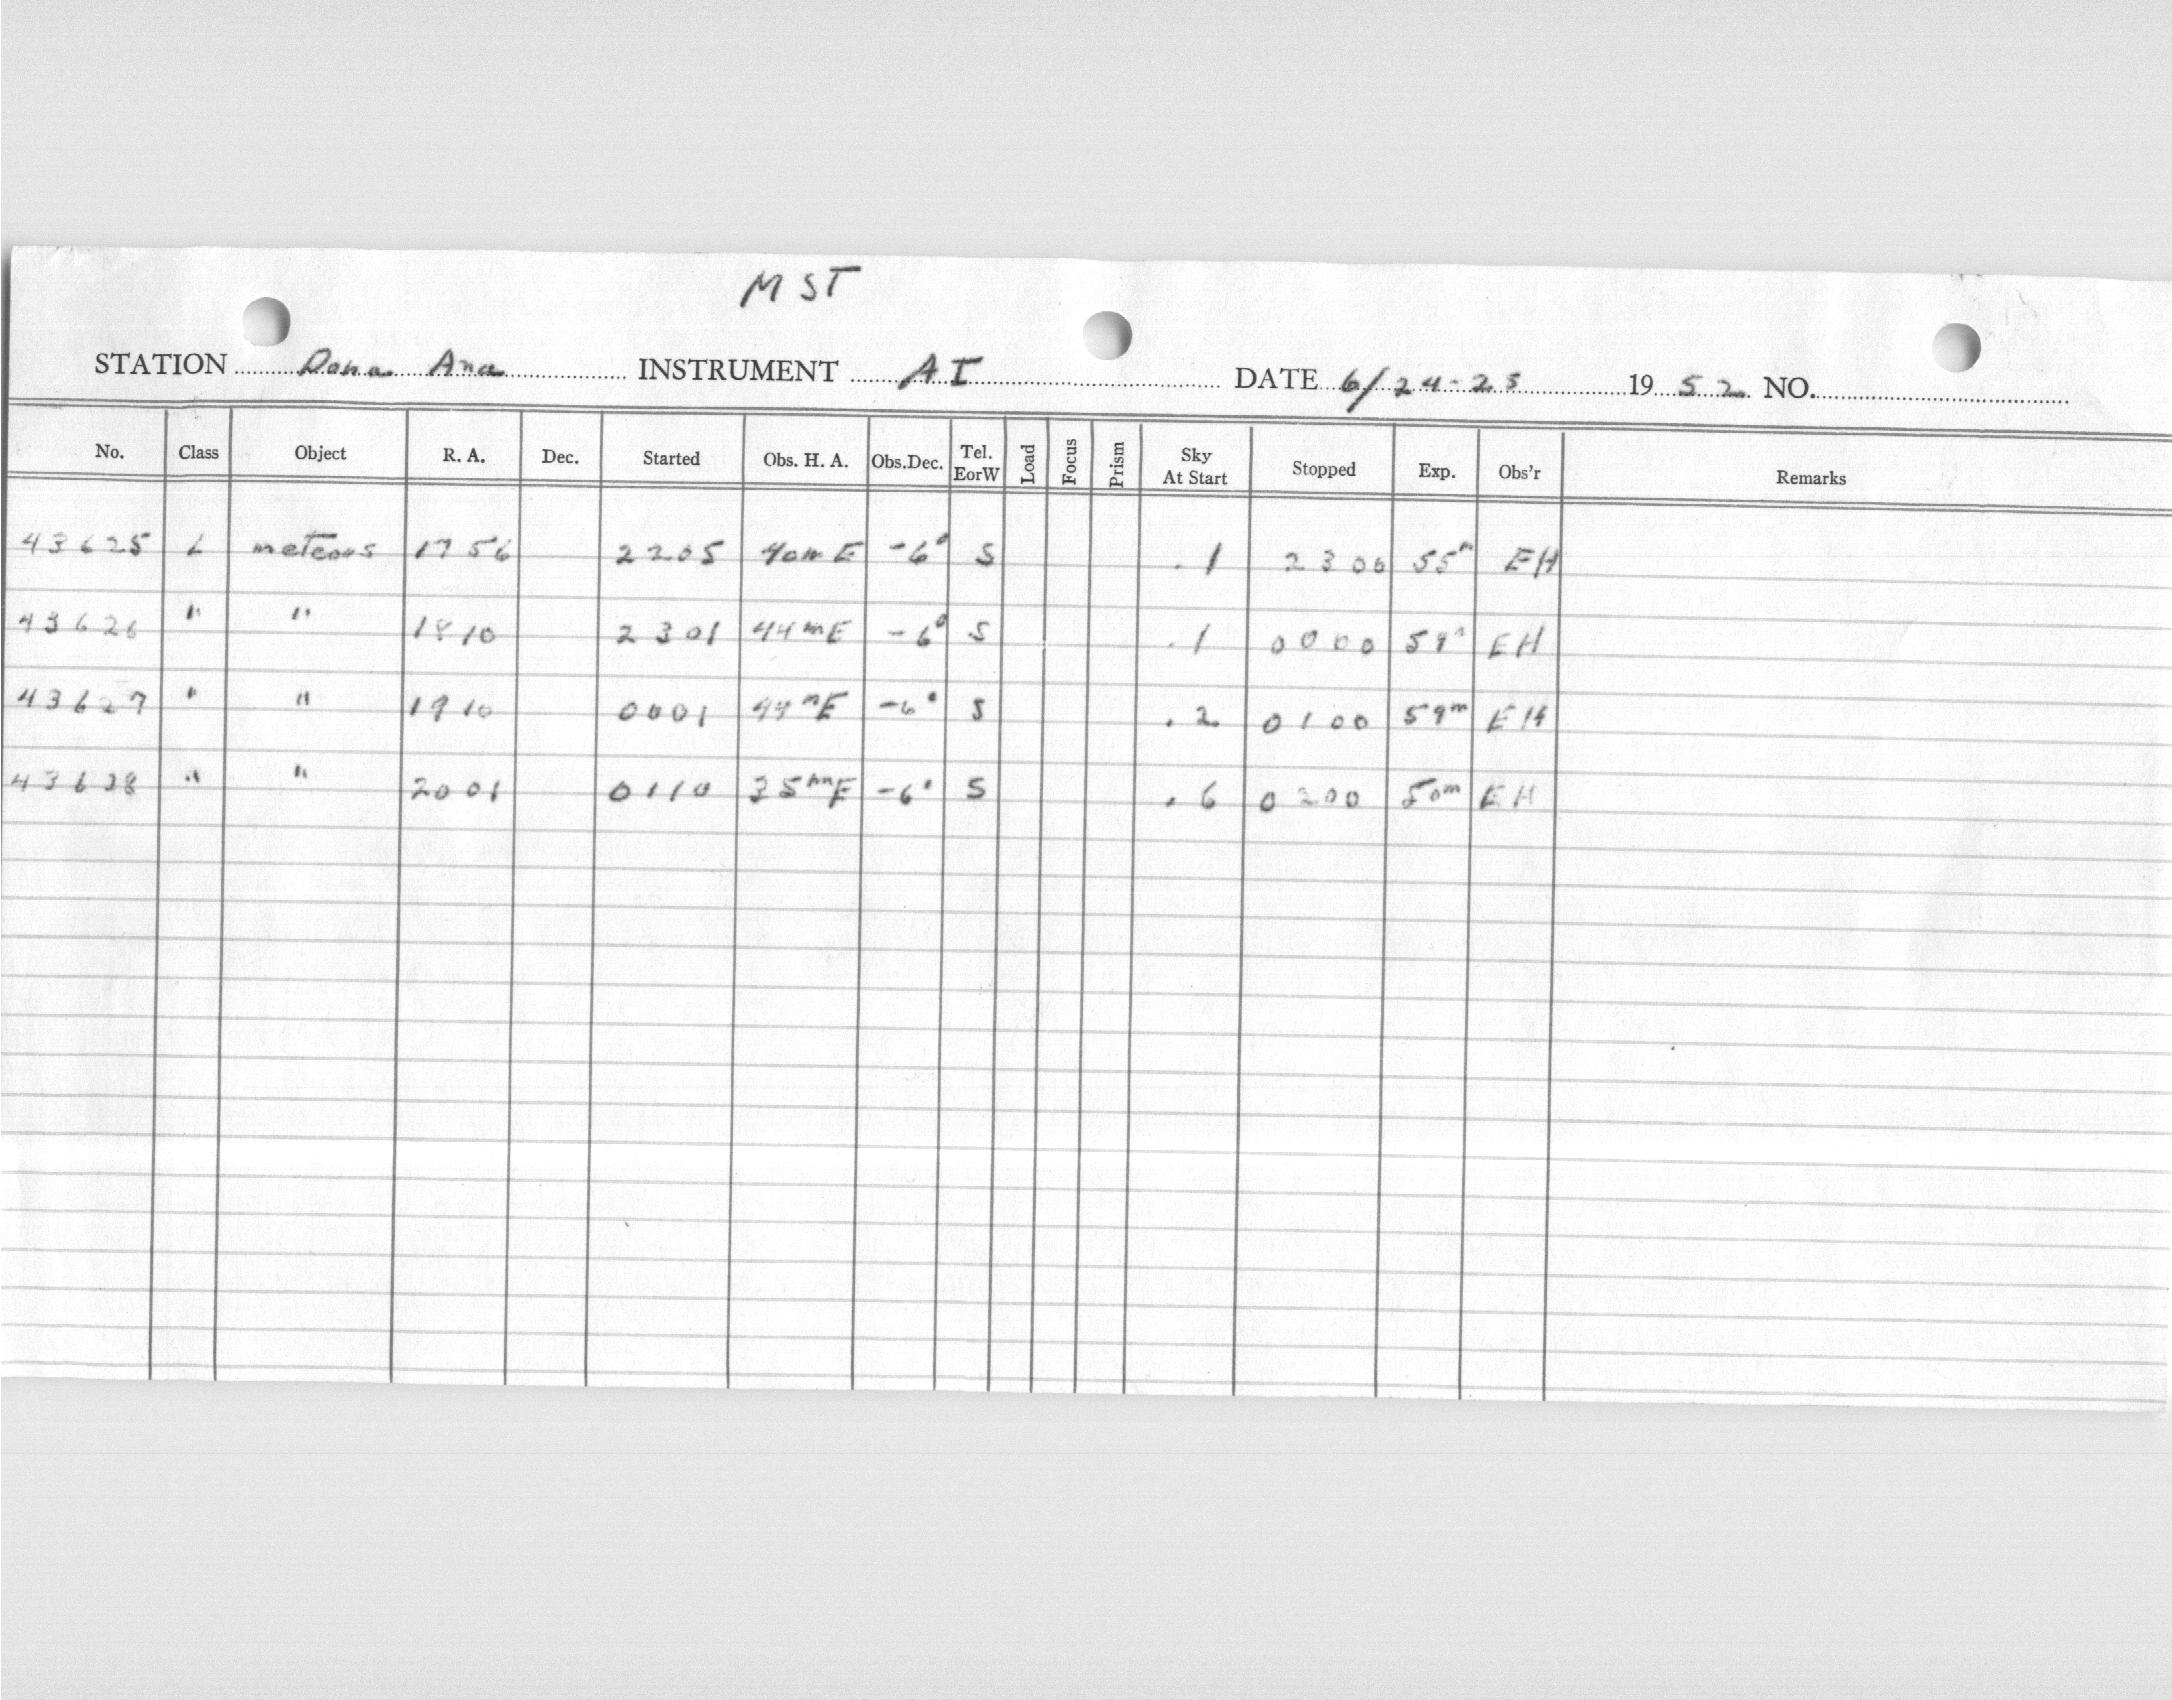 MST
STATION Dona Ana INSTRUMENT AI DATE 6/24-25 1952 NO.
No. Class Object R. A. Dec. Started Obs. H. A. Obs.Dec. Tel. EorW Load Focus Prism Sky At Start Stopped Exp. Obs'r Remarks
43625 L meteors 1756 2205 40m E -6° S .1 2300 55m EH
43626 " " 1810 2301 44m E -6° S .1 0000 59m EH
43627 " " 1910 0001 44m E -6° S .2 0100 59m EH
43628 " " 2001 0110 35m E -6° S .6 0200 50m EH